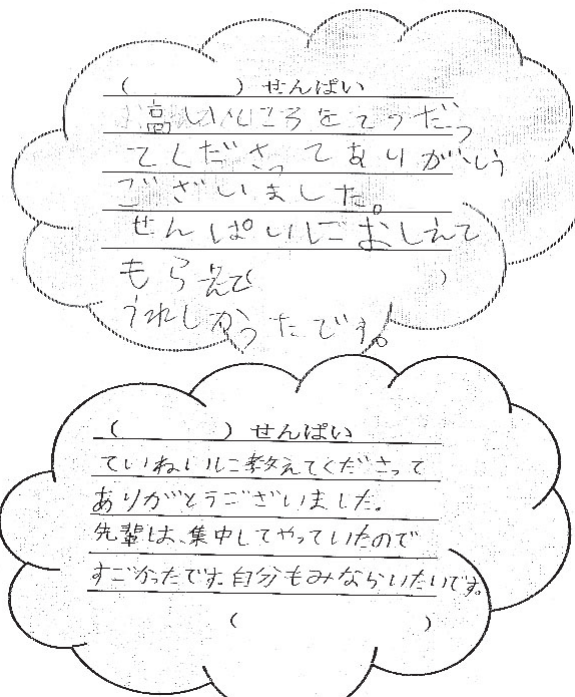 ( ) せんぱい
高いところをてつだっ
てくださってありがとう
ございました。
せんぱいにおしえて
もらえて
うれしかったです。
( ) せんぱい
ていねいに教えてくださって
ありがとうございました。
先輩は、集中してやっていたので
すごかったです。自分もみならいたいです。
( )